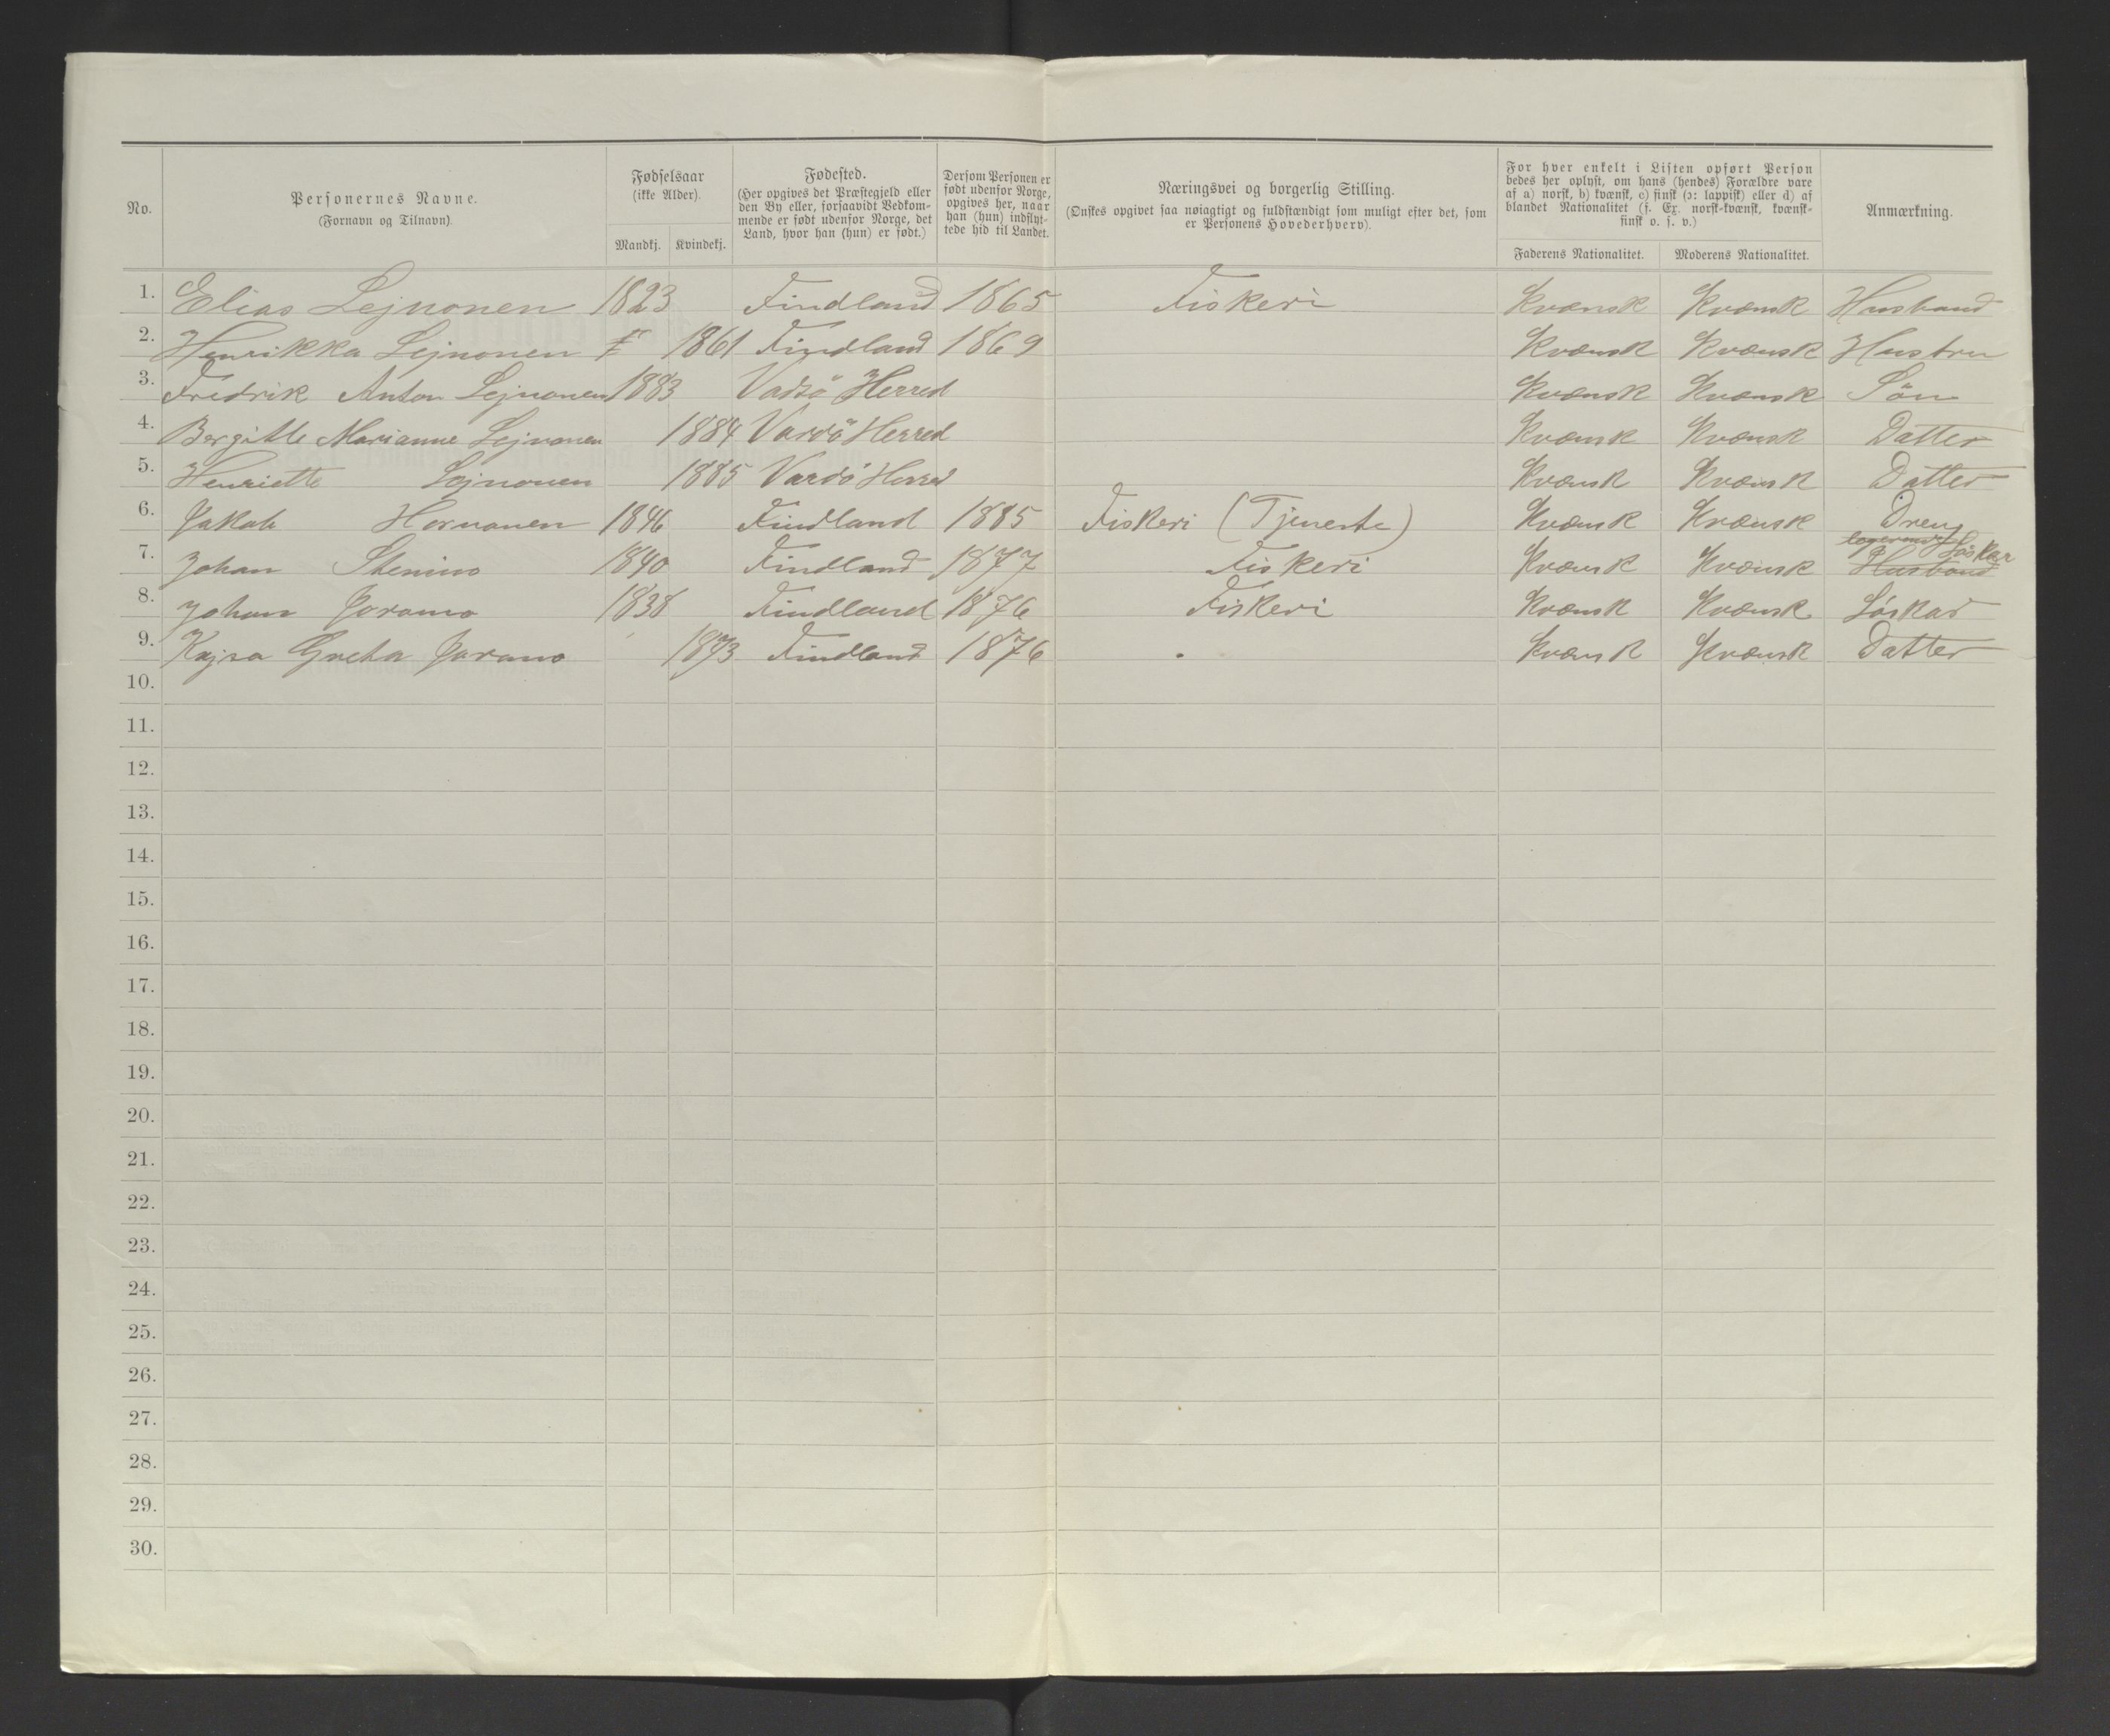 No.
Personernes Navne.
(Fornavn og Tilnavn).
Fødselsaar
(ikke Alder).
Mandkj. Kvindekj.
Fødested.
(Her opgives det Præstegjeld eller
den By eller, forsaavidt Vedkom-
mende er født udenfor Norge, det
Land, hvor han (hun) er født.)
Dersom Personen er
født udenfor Norge,
opgives her, naar
han (hun) indflyt-
tede hid til Landet.
Næringsvei og borgerlig Stilling.
(Ønskes opgivet saa nøiagtigt og fuldstændigt som muligt efter det, som
er Personens Hovederhverv).
For hver enkelt i Listen opført Person
bedes her oplyst, om hans (hendes) Forældre vare
af a) norsk, b) kvænsk, c) finsk (ɔ: lappisk) eller d) af
blandet Nationalitet (f. Ex. norsk-kvænsk, kvænsk-
finsk o. s. v.)
Faderens Nationalitet. Moderens Nationalitet.
Anmærkning.
1. Elias Lejnonen 1823 Findland 1865 Fiskeri Kvænsk Kvænsk Husband
2. Henrikka Lejnonen 1861 Findland 1869 Kvænsk Kvænsk Hustru
3. Fredrik Anton Lejnonen 1883 Vadsö Herred Kvænsk Kvænsk Sön
4. Bergitte Marianne Lejnonen 1884 Vardö Herred Kvænsk Kvænsk Datter
5. Henriette Lejnonen 1885 Vardö Herred Kvænsk Kvænsk Datter
6. Jakob Hornanen 1846 Findland 1885 Fiskeri (Tjeneste) Kvænsk Kvænsk Dreng
logerende Löskar
7. Johan Stenino 1840 Findland 1877 Fiskeri Kvænsk Kvænsk Husband
8. Johan Joramo 1838 Findland 1876 Fiskeri Kvænsk Kvænsk Löskar
9. Kajsa Greta Joramo 1873 Findland 1876 Kvænsk Kvænsk Datter
10.
11.
12.
13.
14.
15.
16.
17.
18.
19.
20.
21.
22.
23.
24.
25.
26.
27.
28.
29.
30.